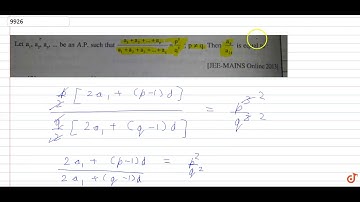 9926
Let a₁, a₂, a₃, ... be an A.P. such that (a₁ + a₂ + ... + aₚ)/(a₁ + a₂ + a₃ + ... + a_q) = p³/q³ ; p ≠ q. Then is
[JEE-MAINS Online 2013]
p/2 [2a₁ + (p-1)d] / q/2 [2a₁ + (q-1)d] = p³ ² / q³ ²
2a₁ + (p-1)d / 2a₁ + (q-1)d = p² / q²